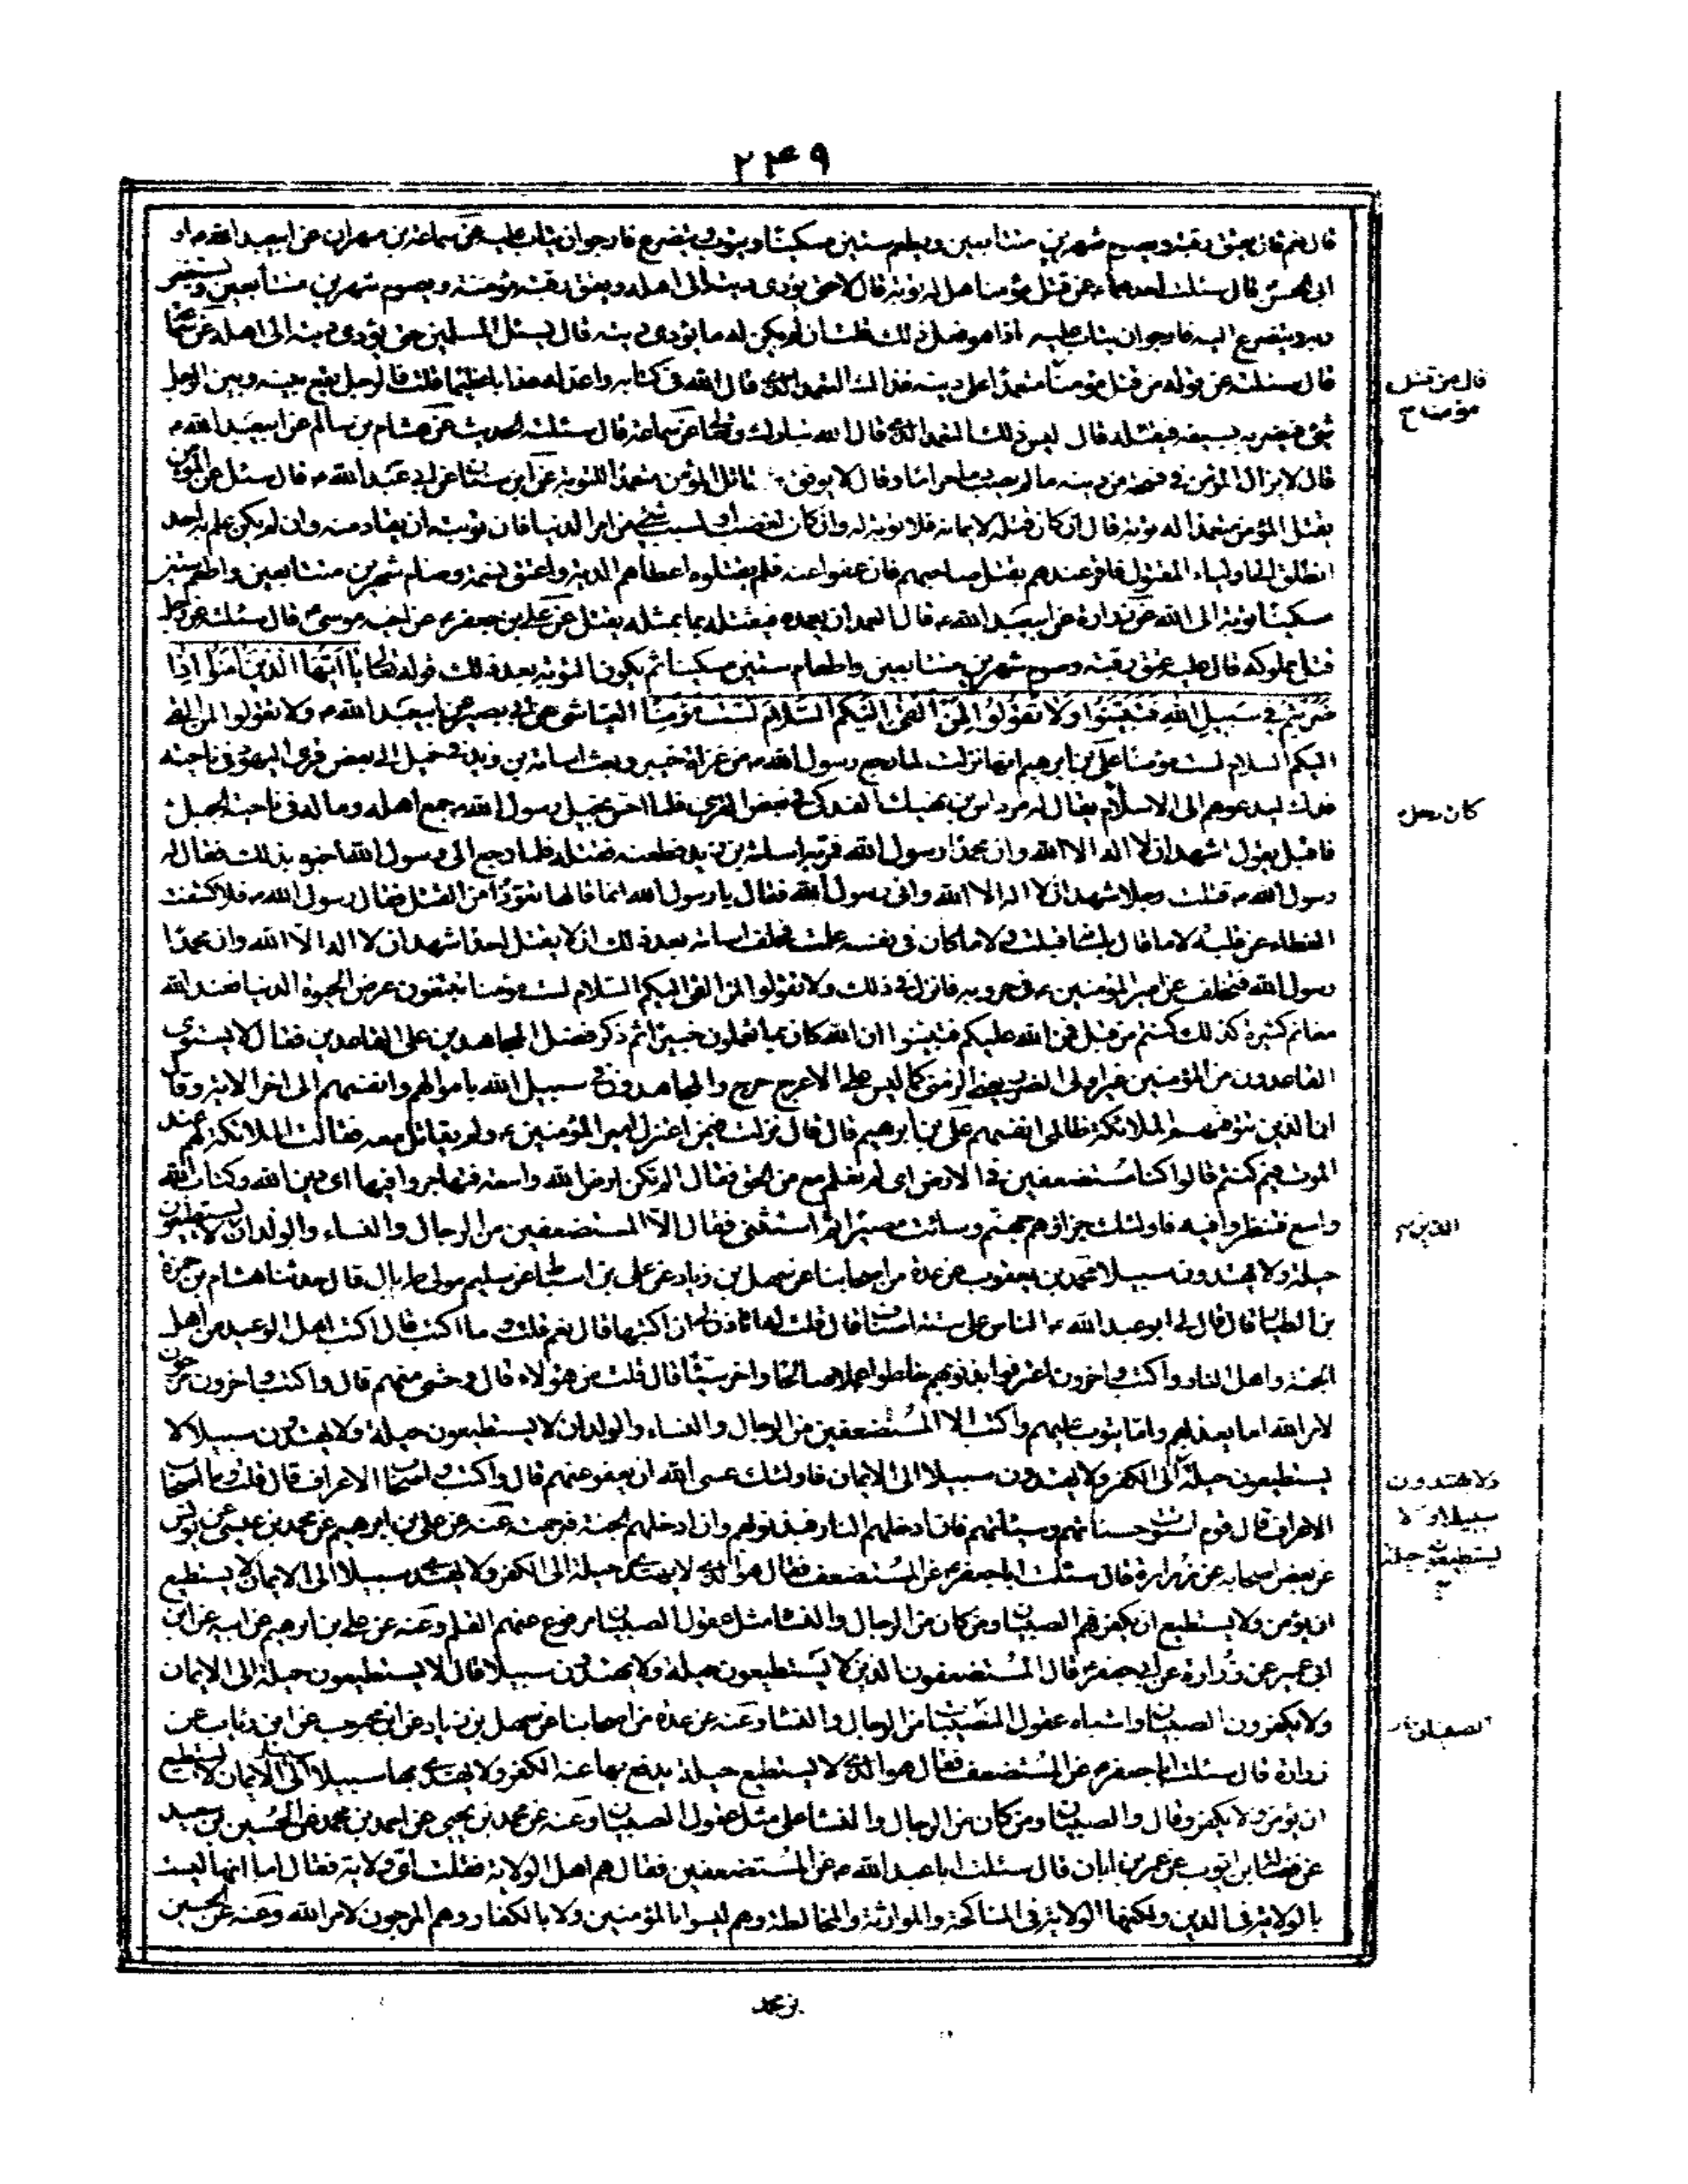 ۲۴۹
قال نعم فان يعتق رقبة ويصوم شهرين متتابعين ويطعم ستين مسكينا ويتوب ويتضرع فارجو ان يتاب عليه عن سماعة بن مهران عن ابيعبد الله ع او
ابي الحسن قال سئلت احدهما ع عن قتل مؤمنا هل له توبة قال لا حتى يؤدى ديته الى اهله ويعتق رقبة مؤمنة ويصوم شهرين متتابعين ويستغفر
ربه ويتضرع اليه فارجو ان يتاب عليه اذا هو فعل ذلك قلت ان لم يكن له ما يؤدى ديته قال يسئل المسلمين حتى يؤدى ديته الى اهله عن سماعة
قال سئلته عن قوله من قتل مؤمنا متعمدا على دينه فذلك التعمد الذى قال الله فى كتابه واعد له عذابا عظيما قلت فالرجل يقع بينه وبين الرجل
شئ فيضربه بسيفه فيقتله قال ليس ذلك التعمد الذى قال الله تبارك وتعالى عن سماعة قال سئلته الحديث عن هشام بن سالم عن ابيعبد الله ع
قال لا يزال المؤمن فى فسحة من دينه ما لم يصب دما حراما وقال لا يوفق قاتل المؤمن متعمدا للتوبة عن ابن سنان عن ابى عبد الله ع قال سئل عن المؤمن
يقتل المؤمن متعمدا له توبة قال ان كان قتله لايمانه فلا توبة له وان كان لغضب او لسبب شئ من امر الدنيا فان توبته ان يقاد منه وان لم يكن علم به احد
انطلق الى اولياء المقتول فاقر عندهم بقتل صاحبهم فان عفوا عنه فلم يقتلوه اعطاهم الدية واعتق نسمة وصام شهرين متتابعين واطعم ستين
مسكينا توبة الى الله عن زرارة عن ابيعبد الله ع قال العمد ان يعمده فيقتله بما بمثله يقتل عن على بن جعفر ع عن اخيه موسى ع قال سئلته عن رجل
قتل مملوكه قال عليه عتق رقبة وصوم شهرين متتابعين واطعام ستين مسكينا ثم يكون التوبة بعد ذلك قوله تعالى يا ايها الذين امنوا اذا
ضربتم فى سبيل الله فتبينوا ولا تقولوا لمن القى اليكم السلام لست مؤمنا العياشى عن ابى بصير عن ابيعبد الله ع ولا تقولوا لمن القى
اليكم السلام لست مؤمنا على بن ابرهيم انها نزلت لما رجع رسول الله ص من غزاة خيبر وبعث اسامة بن زيد فى خيل الى بعض قرى اليهود فى ناحية
فدك ليدعوهم الى الاسلام يقال له مرداس بن نهيك الفدكى فى بعض القرى فلما احس بخيل رسول الله ص جمع اهله وماله فى ناحية الجبل
فاقبل يقول اشهد ان لا اله الا الله وان محمدا رسول الله فمر به اسامة بن زيد فطعنه فقتله فلما رجع الى رسول الله اخبره بذلك فقال له
رسول الله ص قتلت رجلا شهد ان لا اله الا الله وانى رسول الله فقال يا رسول الله انما قالها تعوذا من القتل فقال رسول الله ص فلا كشفت
الغطاء عن قلبه لا ما قال بلسانه قبلت ولا ما كان فى نفسه علمت فحلف اسامة بعد ذلك ان لا يقتل احدا شهد ان لا اله الا الله وان محمدا
رسول الله فتخلف عن امير المؤمنين ع فى حروبه فانزل فى ذلك ولا تقولوا لمن القى اليكم السلام لست مؤمنا تبتغون عرض الحيوة الدنيا فعند الله
مغانم كثيرة كذلك كنتم من قبل فمن الله عليكم فتبينوا ان الله كان بما تعملون خبيرا ثم ذكر فضل المجاهدين على القاعدين فقال لا يستوى
القاعدون من المؤمنين غير اولى الضرر يعنى الزمنى كما ليس على الاعرج حرج والمجاهدون فى سبيل الله باموالهم وانفسهم الى اخر الاية وقال
ان الذين توفيهم الملائكة ظالمى انفسهم على بن ابرهيم قال قال نزلت فيمن اعتزل امير المؤمنين ع ولم يقاتل معه فقالت الملائكة لهم عند
الموت فيم كنتم قالوا كنا مستضعفين فى الارض اى لم نعلم مع من الحق فقال الم تكن ارض الله واسعة فتهاجروا فيها اى دين الله وكتاب الله
واسع فتنظروا فيه فاولئك جزاؤهم جهنم وسائت مصيرا ثم استثنى فقال الا المستضعفين من الرجال والنساء والولدان لا يستطيعون
حيلة ولا يهتدون سبيلا محمد بن يعقوب عن عدة من اصحابنا عن سهل بن زياد عن على بن اسباط عن سليم مولى طربال قال حدثنا هشام بن حمزة
بن الطيار قال قال لى ابو عبد الله ع الناس على ستة اصناف قال قلت له اتأذن لى ان اكتبها قال نعم قلت وما اكتب قال اكتب اهل الوعيد من اهل
الجنة واهل النار واكتب واخرون اعترفوا بذنوبهم خلطوا عملا صالحا واخر سيئا قال قلت من هؤلاء قال وحشى منهم قال واكتب واخرون مرجون
لامر الله اما يعذبهم واما يتوب عليهم واكتب الا المستضعفين من الرجال والنساء والولدان لا يستطيعون حيلة ولا يهتدون سبيلا لا
يستطيعون حيلة الى الكفر ولا يهتدون سبيلا الى الايمان فاولئك عسى الله ان يعفو عنهم قال واكتب واصحاب الاعراف قال قلت وما اصحاب
الاعراف قال قوم استوت حسناتهم وسيئاتهم فان ادخلهم النار فبذنوبهم وان ادخلهم الجنة فبرحمته عنه عن على بن ابرهيم عن محمد بن عيسى عن يونس
عن بعض اصحابه عن زرارة قال سئلت ابا جعفر ع عن المستضعف فقال هو الذى لا يهتدى حيلة الى الكفر ولا يهتدى سبيلا الى الايمان لا يستطيع
ان يؤمن ولا يستطيع ان يكفر فهم الصبيان ومن كان من الرجال والنساء مثل عقول الصبيان مرفوع عنهم القلم وعنه عن على بن ابرهيم عن ابيه عن ابن
ابى عمير عن زرارة عن ابى جعفر ع قال المستضعفون الذين لا يستطيعون حيلة ولا يهتدون سبيلا قال لا يستطيعون حيلة الى الايمان
ولا يكفرون الصبيان واشباه عقول الصبيان من الرجال والنساء وعنه عن عدة من اصحابنا عن سهل بن زياد عن ابن محبوب عن ابن رئاب عن
زرارة قال سئلت ابا جعفر ع عن المستضعف فقال هو الذى لا يستطيع حيلة يدفع بها عنه الكفر ولا يهتدى بها سبيلا الى الايمان لا يستطيع
ان يؤمن ولا يكفر وقال والصبيان ومن كان من الرجال والنساء على مثل عقول الصبيان وعنه عن محمد بن يحيى عن احمد بن محمد عن الحسين بن سعيد
عن فضالة بن ايوب عن عمر بن ابان قال سئلت ابا عبد الله ع عن المستضعفين فقال هم اهل الولاية فقلت اى ولاية فقال اما انها ليست
بالولاية فى الدين ولكنها الولاية فى المناكحة والموارثة والمخالطة وهم ليسوا بالمؤمنين ولا بالكفار وهم المرجون لامر الله وعنه عن الحسين
بن محمد
قال من قتل
مؤمنا ح
كان رجل
الذين
ولا يهتدون
سبيلا لا
يستطيعون حيلة
الصبيان